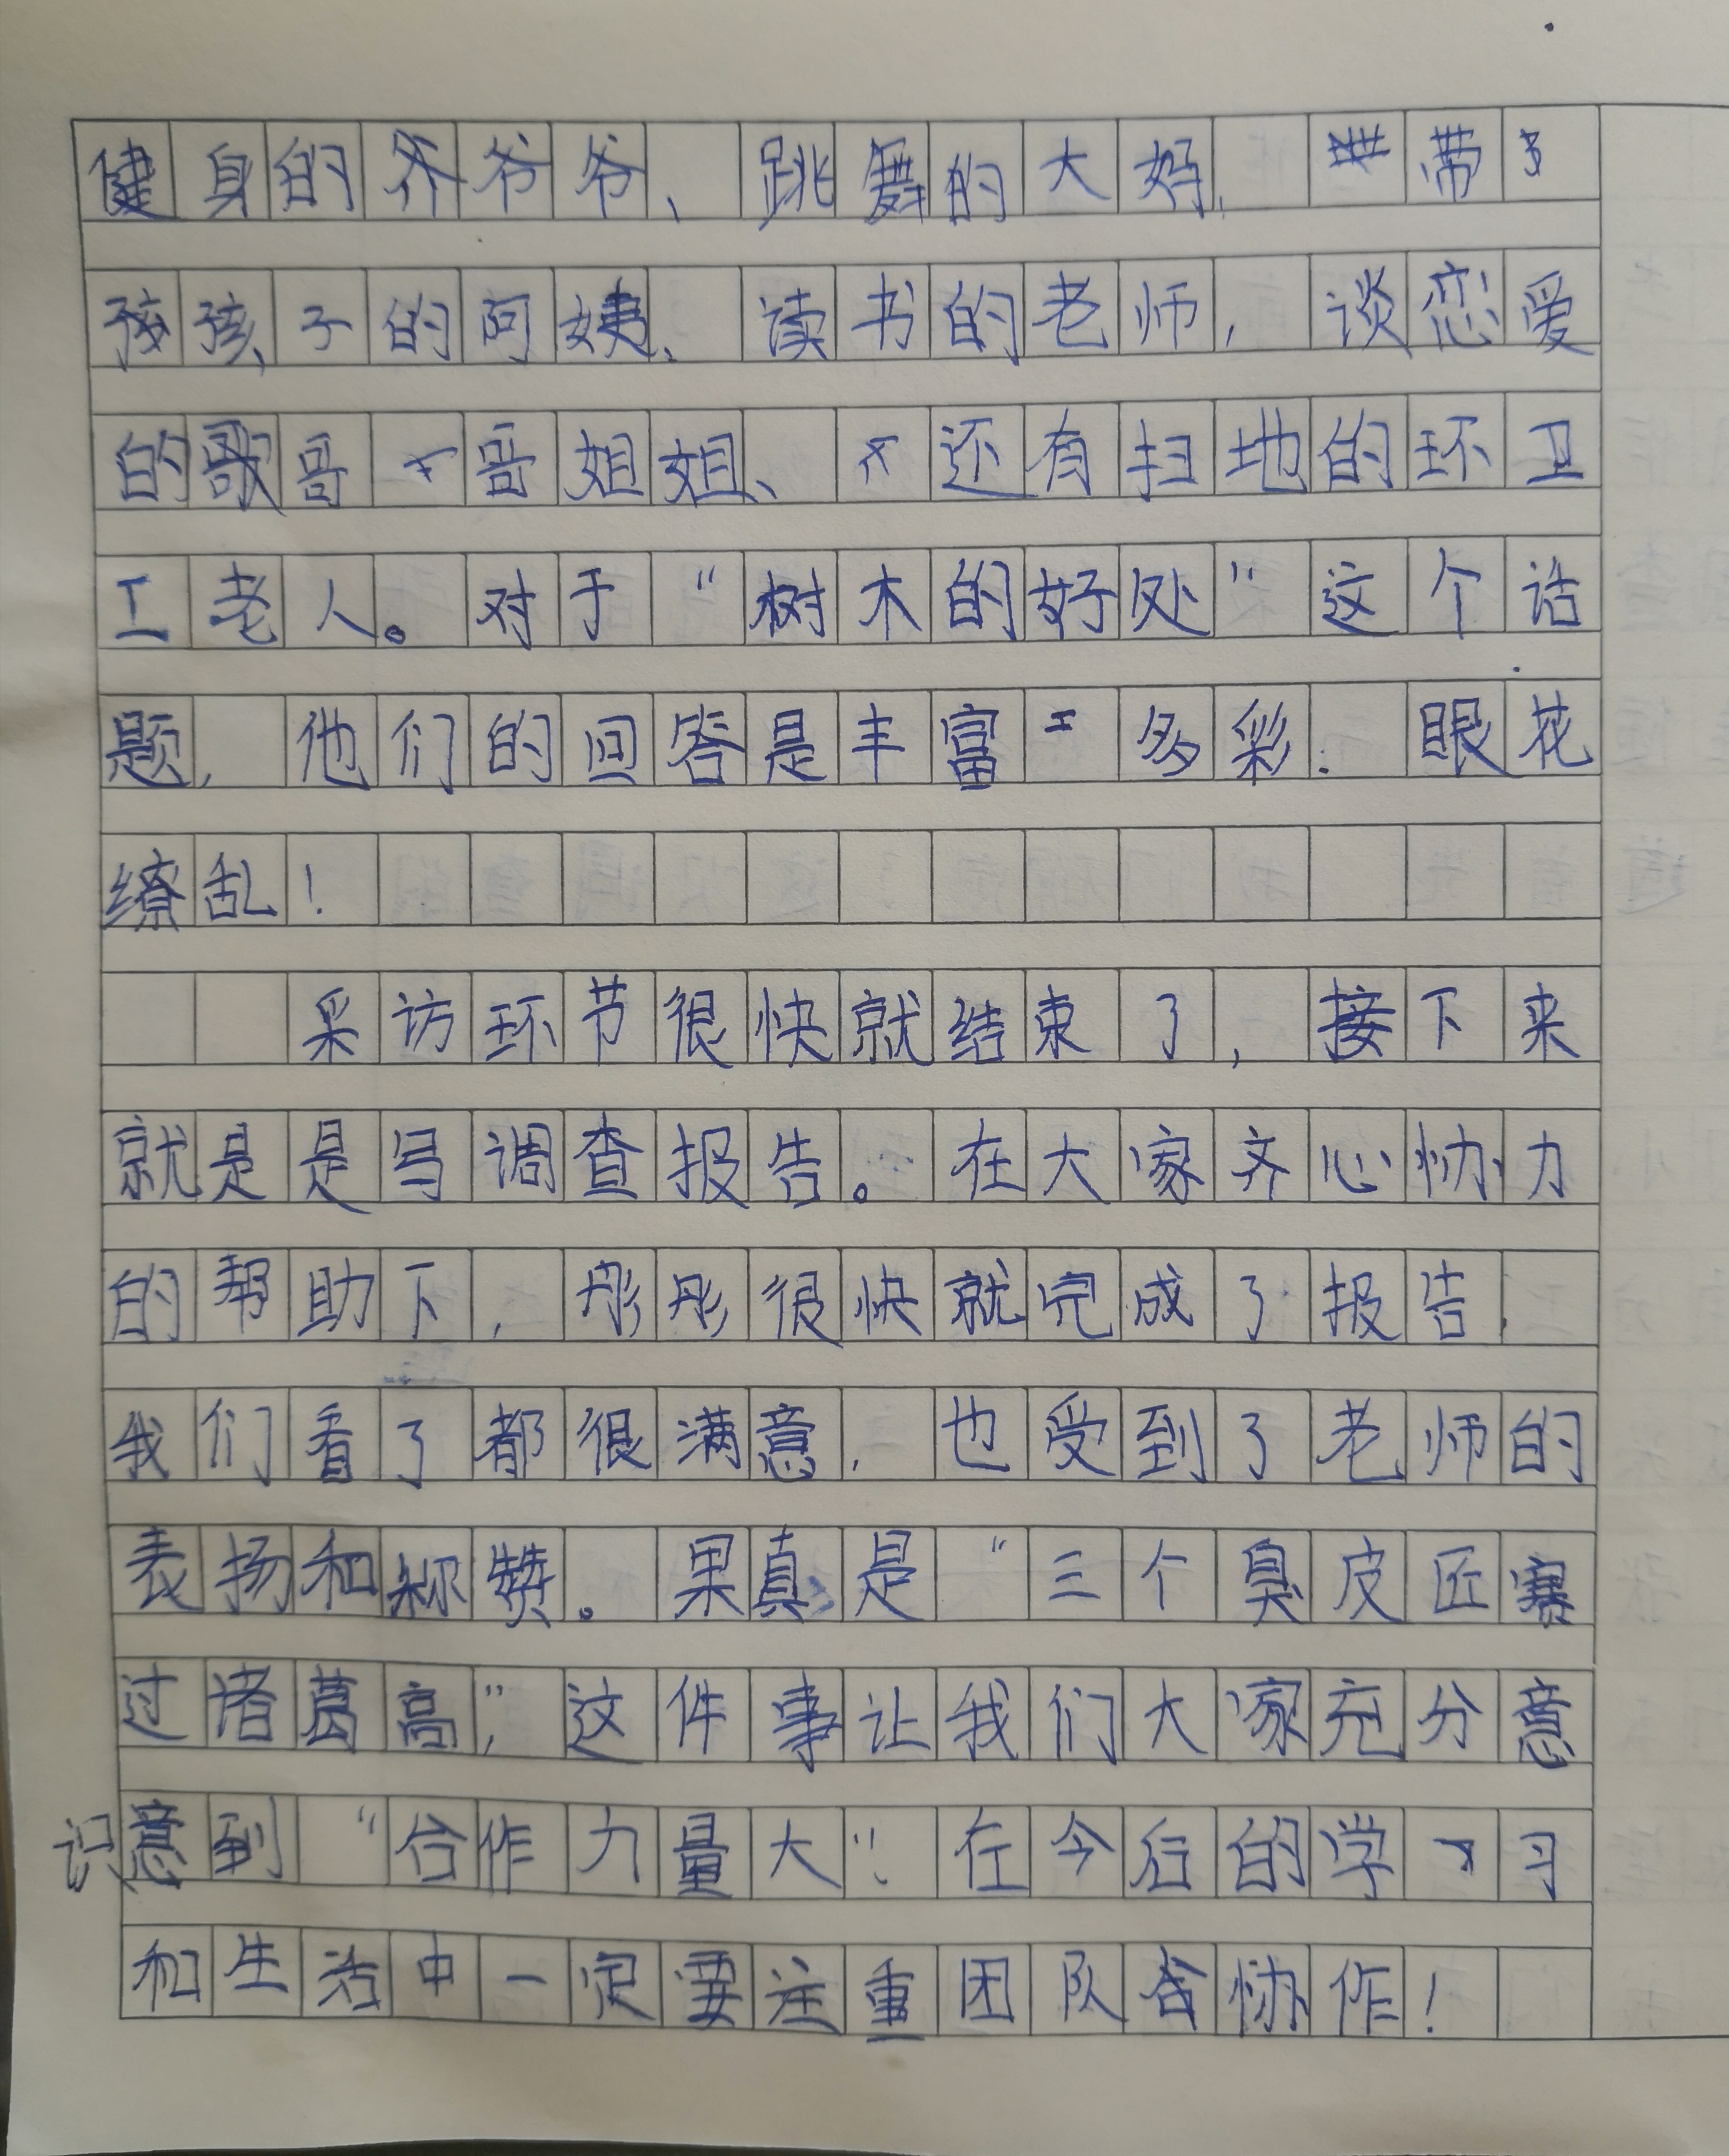 健身的爷爷、跳舞的大妈、带
孩子的阿姨、读书的老师,谈恋爱
的哥哥姐姐、还有扫地的环卫
工老人。对于“树木的好处”这个话
题,他们的回答是丰富多彩.眼花
缭乱!
采访环节很快就结束了,接下来
就是是写调查报告。在大家齐心协力
的帮助下,彤彤很快就完成了报告,
我们看了都很满意,也受到了老师的
表扬和称赞。果真是“三个臭皮匠赛
过诸葛亮”,这件事让我们大家充分意
识到“合作力量大”!在今后的学习
和生活中一定要注重团队协作!